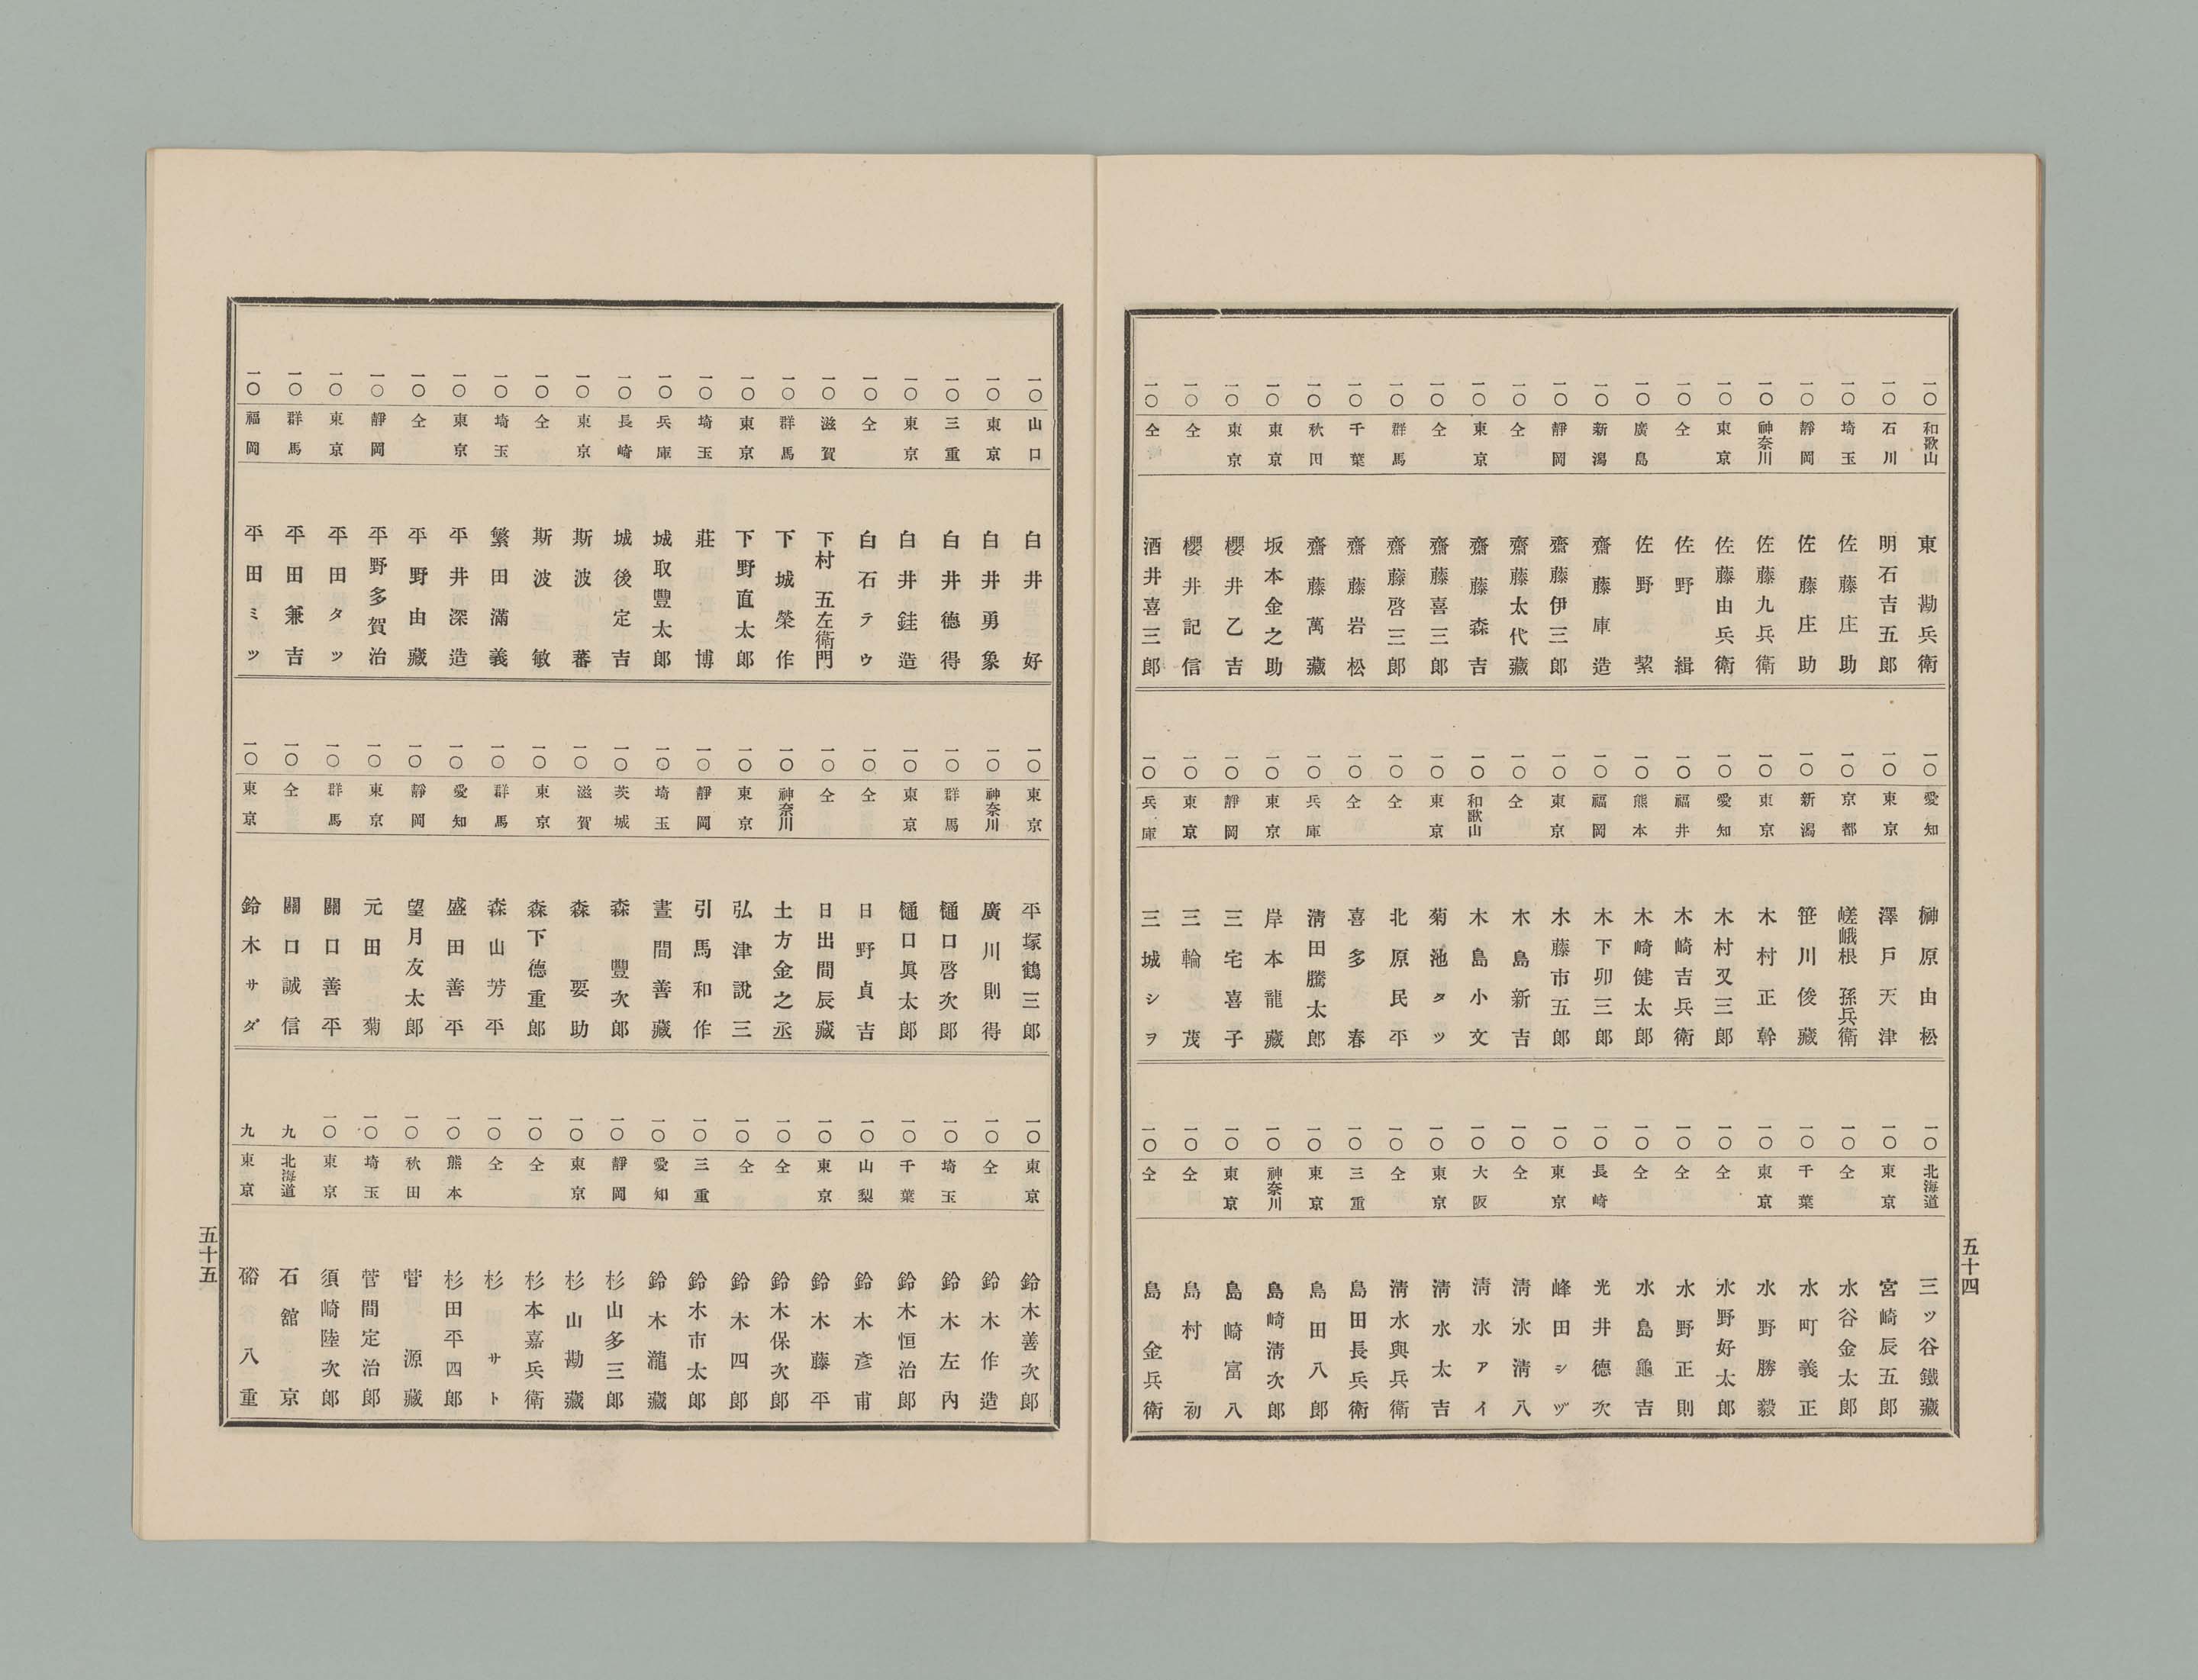 一〇 和歌山 東勘兵衛
一〇 石川 明石吉五郎
一〇 埼玉 佐藤庄助
一〇 靜岡 佐藤庄助
一〇 神奈川 佐藤九兵衛
一〇 東京 佐藤由兵衛
一〇 仝 佐野緝
一〇 廣島 佐野絜
一〇 新潟 齋藤庫造
一〇 靜岡 齋藤伊三郎
一〇 仝 齋藤太代藏
一〇 東京 齋藤森吉
一〇 仝 齋藤喜三郎
一〇 群馬 齋藤啓三郎
一〇 千葉 齋藤岩松
一〇 秋田 齋藤萬藏
一〇 東京 坂本金之助
一〇 東京 櫻井乙吉
一〇 仝 櫻井記信
一〇 仝 酒井喜三郎
一〇 愛知 榊原由松
一〇 東京 澤戸天津
一〇 京都 嵯峨根孫兵衛
一〇 新潟 笹川俊藏
一〇 東京 木村正幹
一〇 愛知 木村又三郎
一〇 福井 木崎吉兵衛
一〇 熊本 木崎健太郎
一〇 福岡 木下卯三郎
一〇 東京 木藤市五郎
一〇 仝 木島新吉
一〇 和歌山 木島小文
一〇 東京 菊池タッ
一〇 仝 北原民平
一〇 仝 喜多春
一〇 兵庫 淸田騰太郎
一〇 東京 岸本龍藏
一〇 靜岡 三宅喜子
一〇 東京 三輪茂
一〇 兵庫 三城シヲ
一〇 北海道 三ッ谷鐵藏
一〇 東京 宮崎辰五郎
一〇 仝 水谷金太郎
一〇 千葉 水町義正
一〇 東京 水野勝毅
一〇 仝 水野好太郎
一〇 仝 水野正則
一〇 仝 水島龜吉
一〇 長崎 光井德次
一〇 東京 峰田シヅ
一〇 仝 淸水淸八
一〇 大阪 淸水アイ
一〇 東京 淸水太吉
一〇 仝 淸水與兵衛
一〇 三重 島田長兵衛
一〇 東京 島田八郎
一〇 神奈川 島崎淸次郎
一〇 東京 島崎富八
一〇 仝 島村初
一〇 仝 島金兵衛
五十四
一〇 山口 白井好
一〇 東京 白井勇象
一〇 三重 白井德得
一〇 東京 白井銈造
一〇 仝 白石テゥ
一〇 滋賀 下村五左衛門
一〇 群馬 下城榮作
一〇 東京 下野直太郎
一〇 埼玉 莊博
一〇 兵庫 城取豐太郎
一〇 長崎 城後定吉
一〇 東京 斯波蕃
一〇 仝 斯波敏
一〇 埼玉 繁田滿義
一〇 東京 平井深造
一〇 仝 平野由藏
一〇 靜岡 平野多賀治
一〇 東京 平田タッ
一〇 群馬 平田兼吉
一〇 福岡 平田ミッ
一〇 東京 平塚鶴三郎
一〇 神奈川 廣川則得
一〇 群馬 樋口啓次郎
一〇 東京 樋口眞太郎
一〇 仝 日野貞吉
一〇 仝 日出間辰藏
一〇 神奈川 土方金之丞
一〇 東京 弘津說三
一〇 靜岡 引馬和作
一〇 埼玉 晝間善藏
一〇 茨城 森豐次郎
一〇 滋賀 森要助
一〇 東京 森下德重郎
一〇 群馬 森山芳平
一〇 愛知 盛田善平
一〇 靜岡 望月友太郎
一〇 東京 元田菊
一〇 群馬 關口善平
一〇 仝 關口誠信
一〇 東京 鈴木サダ
一〇 東京 鈴木善次郎
一〇 仝 鈴木作造
一〇 埼玉 鈴木左內
一〇 千葉 鈴木恒治郎
一〇 山梨 鈴木彥甫
一〇 東京 鈴木藤平
一〇 仝 鈴木保次郎
一〇 仝 鈴木四郎
一〇 三重 鈴木市太郎
一〇 愛知 鈴木瀧藏
一〇 靜岡 杉山多三郎
一〇 東京 杉山勘藏
一〇 仝 杉本嘉兵衛
一〇 仝 杉サト
一〇 熊本 杉田平四郎
一〇 秋田 菅源藏
一〇 埼玉 菅間定治郎
一〇 東京 須崎陸次郎
九 北海道 石舘京
九 東京 硲八重
五十五